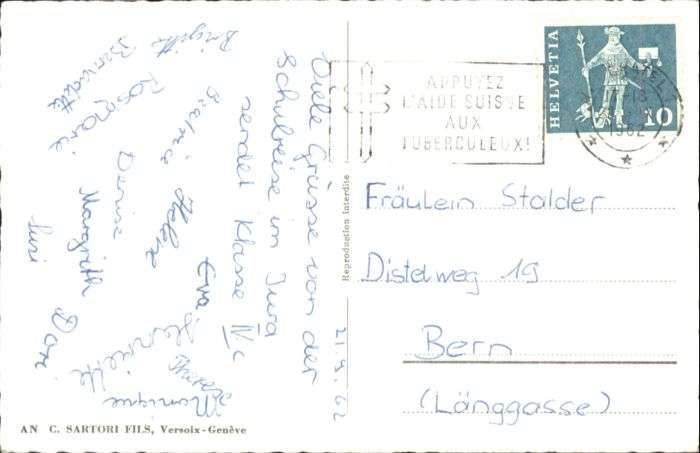 Viele Grüsse von der
Schulreise im Jura
sendet Klasse IVc
21.9.62
Brigitte
Bernadette
Rosmarie
Beatrice
Denise
Margrith
Susi
Heinz
Eva
Dori
Henriette
Therese
Monique
Reproduction interdite
AN C. SARTORI FILS, Versoix-Genève
APPUYEZ
L'AIDE SUISSE
AUX
TUBERCULEUX!
1962
HELVETIA
10
Fräulein Stalder
Distelweg 19
Bern
(Länggasse)